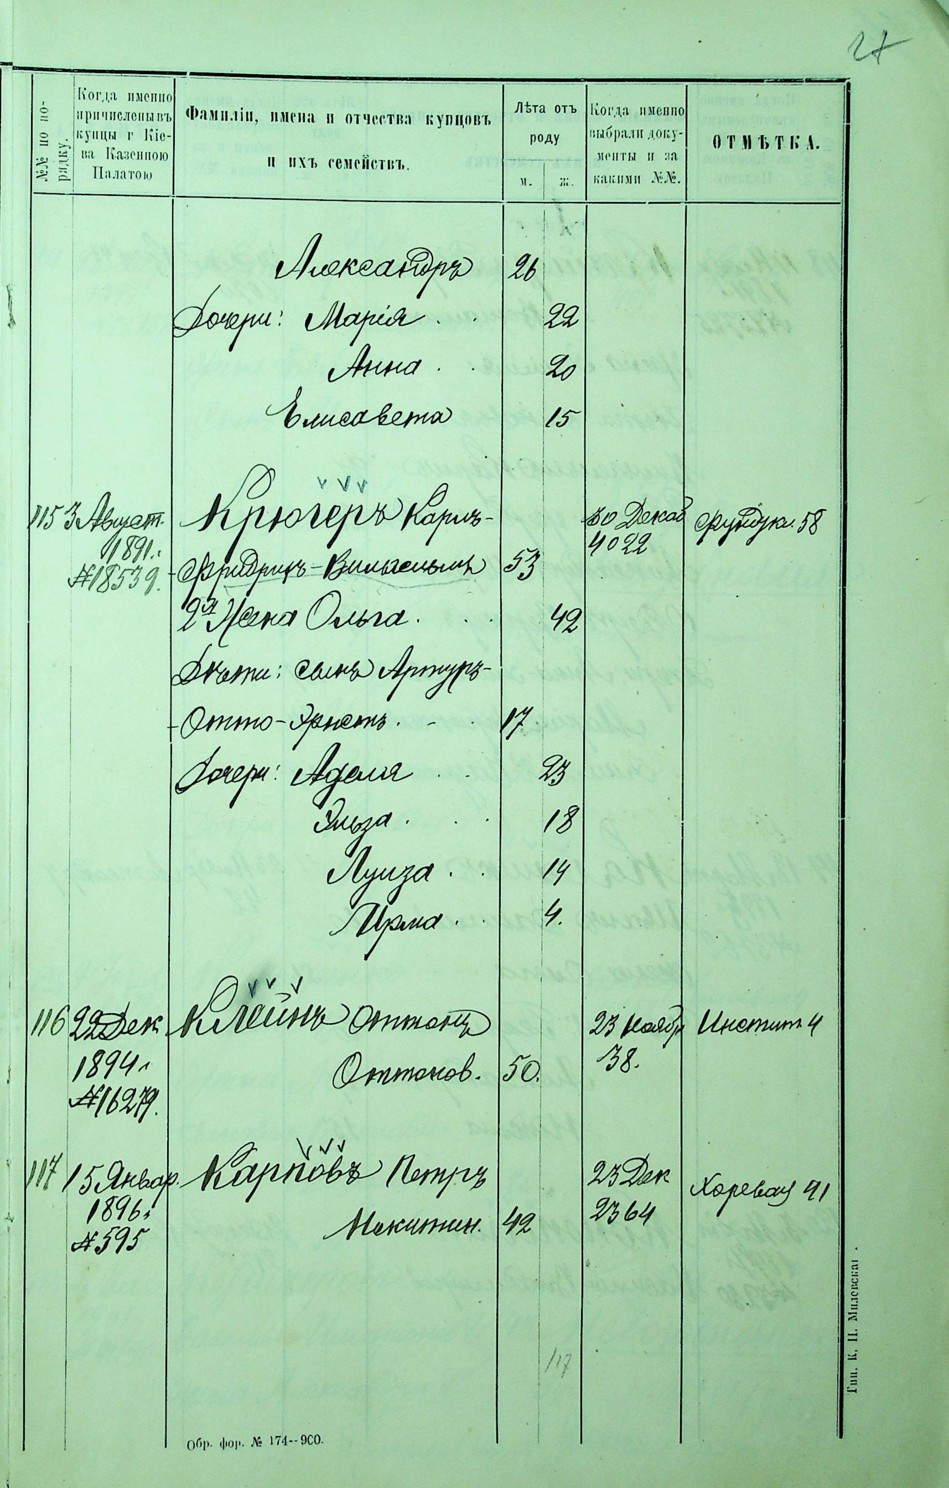 27
№№ по по-
рядку.
Когда именно
причислены въ
купцы г Кіе-
ва Казенною
Палатою
Фамиліи, имена и отчества купцовъ
и ихъ семействъ.
Лѣта отъ
роду
м. ж.
Когда именно
выбрали доку-
менты и за
какими №№.
ОТМѢТКА.
Александръ 26
Дочери: Марія 22
Анна 20
Елисавета 15
115 3 Август. Крюгеръ Карлъ- 30 Декаб Фундукл 58
1891г. 4022
№18539. -Фридрихъ-Вильгельмъ 53
2я Жена Ольга 42
Дѣти: сынъ Артуръ-
-Отто-Эрнстъ 17
Дочери: Аделя 23
Эльза 18
Луиза 14
Ирма 4.
116 22 Дек Клейнъ Оттонъ 23 Ноябр Институт 4
1894г Оттонов. 50. 38.
№16279.
117 15 Январ. Карповъ Петръ 23 Дек Хоревая 41
1896г. Никитин. 42 2364
№595
117
Обр. фор. № 174--900.
Тип. К. Н. Милевскаг.